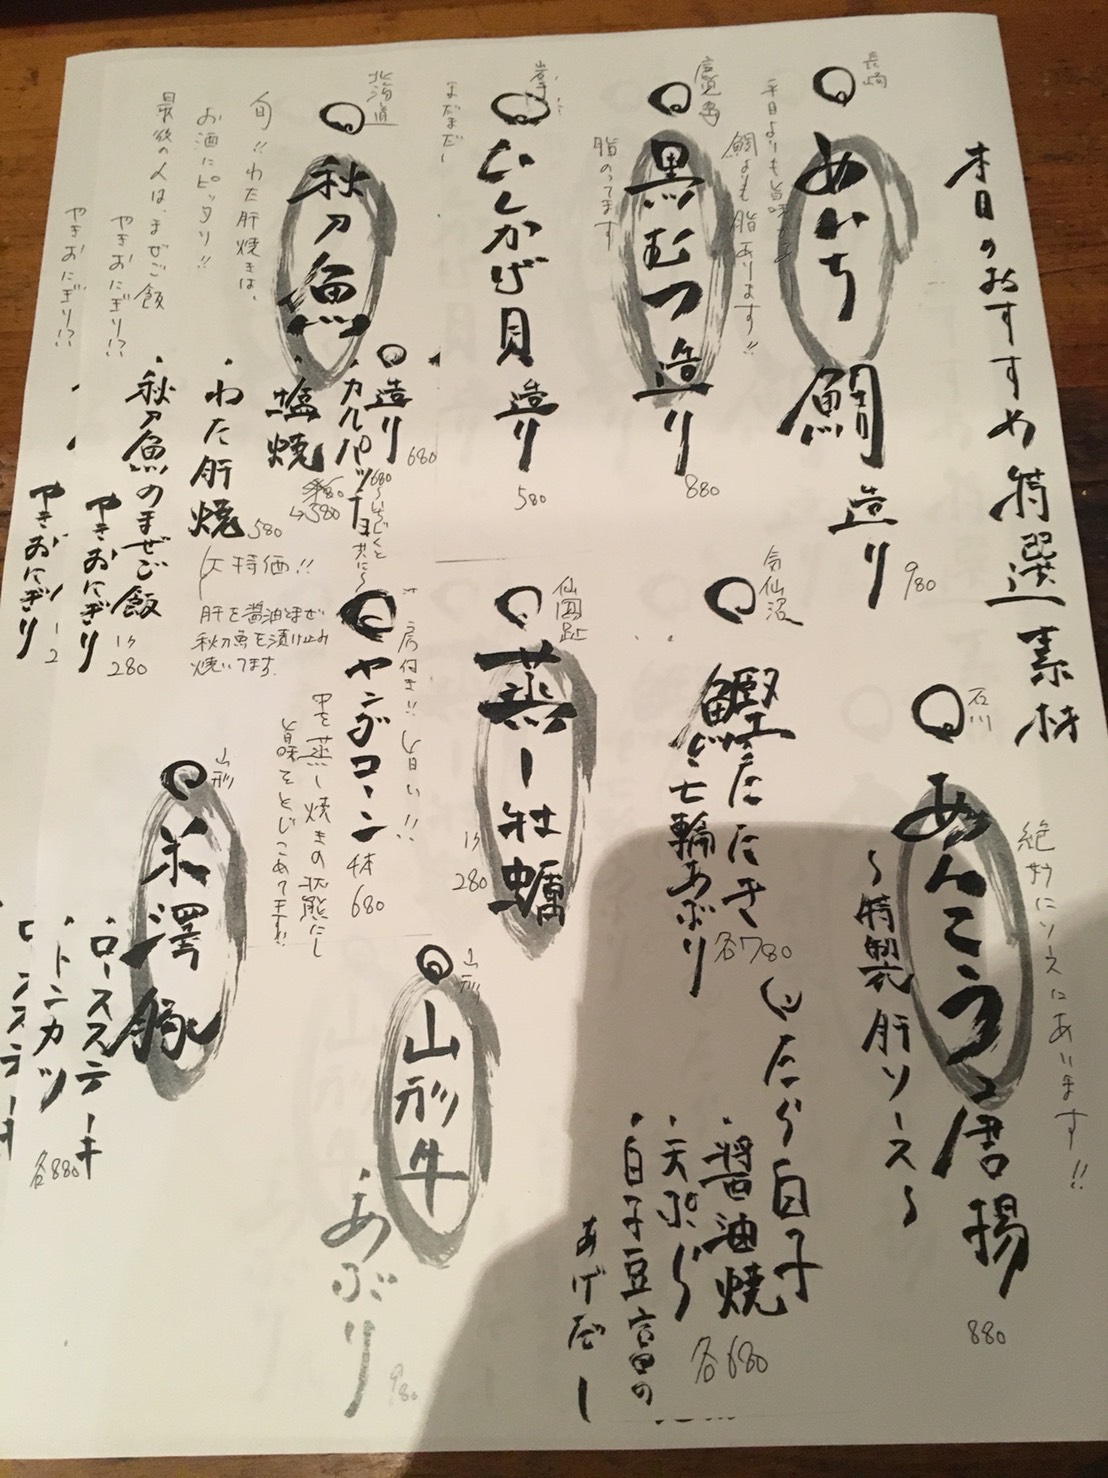 本日のおすすめ特選素材
長崎
めいち鯛造り
980
平目よりも旨味
鯛よりも脂あります!!
黒むつ造り
880
脂のってます
いしかげ貝造り
580
北海道
秋刀魚
・造り
680
・カルパッチョ
680
・塩焼
580
旬!!わた肝焼きは、
お酒にピッタリ!!
・わた肝焼
580
大特価!!
肝を醤油とまぜ
秋刀魚を漬け込み
焼いてます
最後の〆は、まぜご飯
やきおにぎり!?
やきおにぎり!?
・秋刀魚のまぜご飯
やきおにぎり
1ケ
280
やきおにぎり
石川
あんこう唐揚
880
〜特製肝ソース〜
絶妙にソースにあいます!!
気仙沼
鰹たたき
七輪あぶり
各780
たら白子
・醤油焼
・天ぷら
各680
・白子豆富の
あげ出し
蒸し牡蠣
1ケ
280
ヤングコーン
4本
680
旨い!!
中を蒸し焼きの状態にし
旨味をとじこめてます!!
山形
山形牛
・あぶり
980
山形
米澤豚
・ロースステーキ
・トンカツ
各880